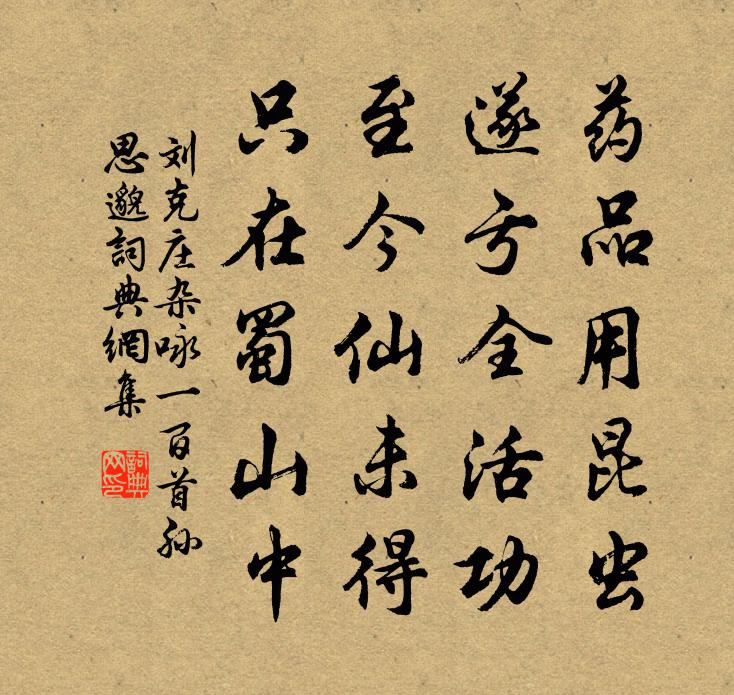 药品用昆虫
遂亏全活功
至今仙未得
只在蜀山中
刘克庄杂咏一百首孙
思邈詞典網集
詞典
网印